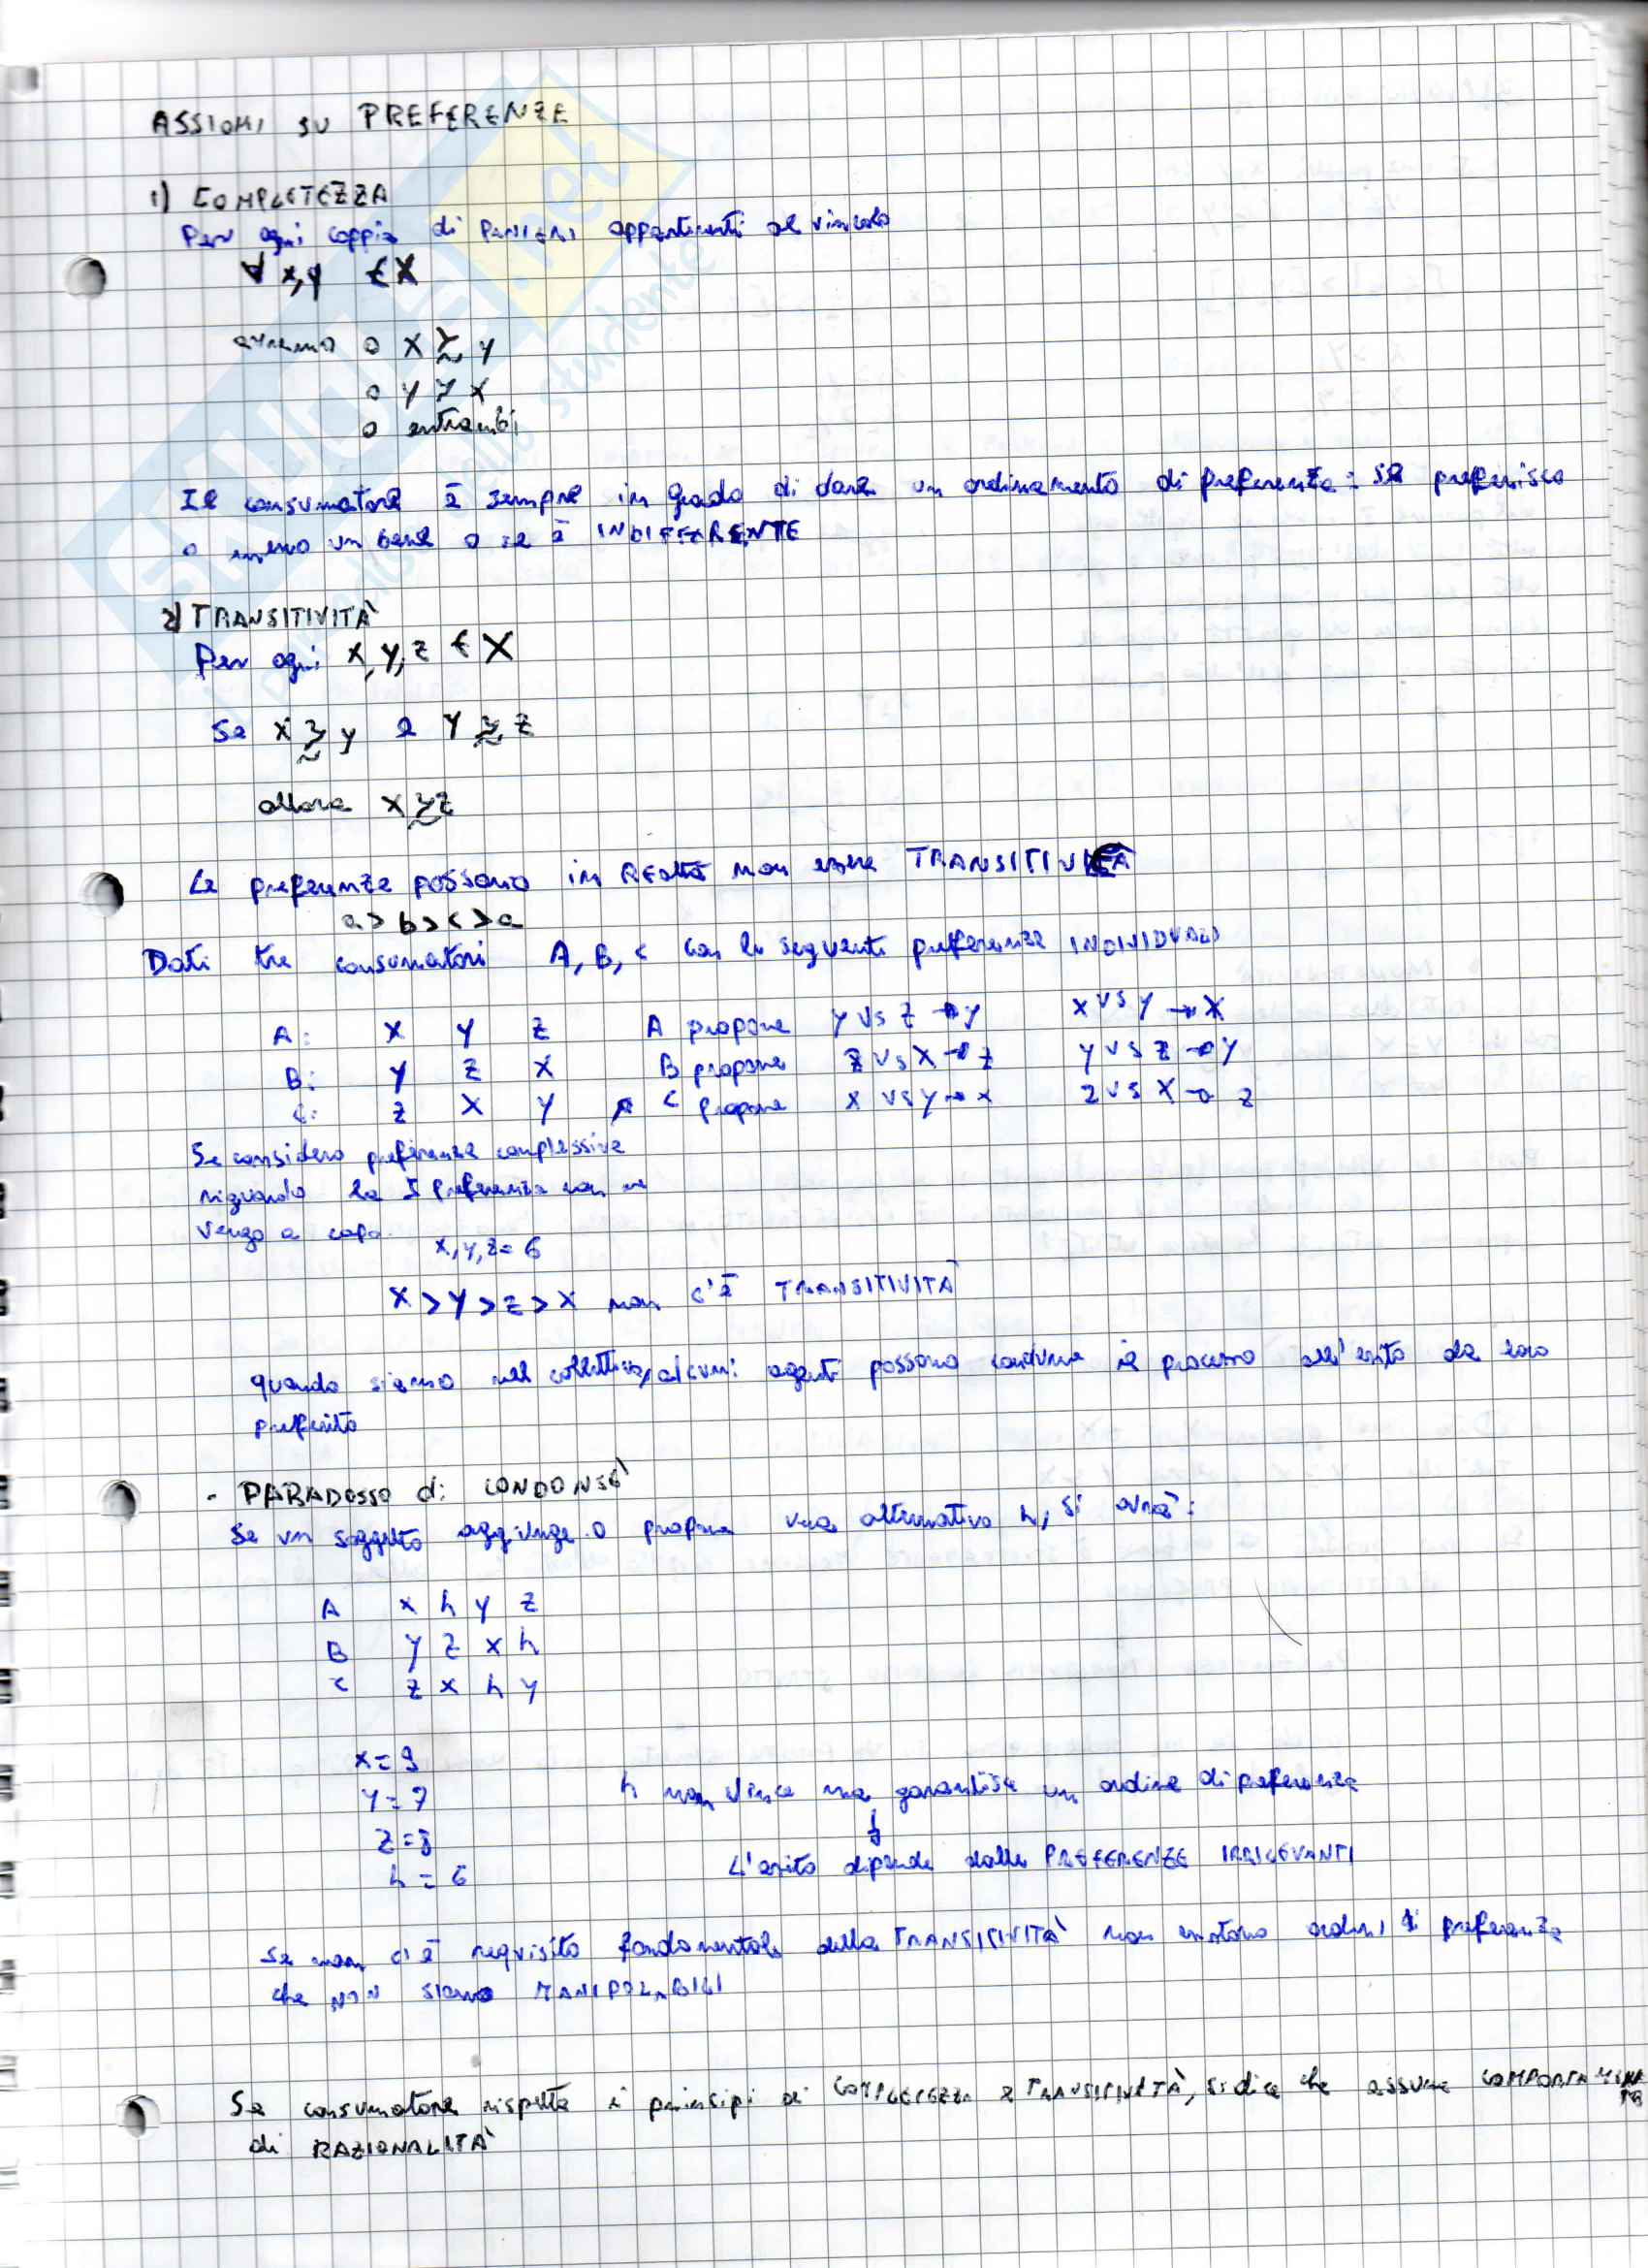 ASSIOMI SU PREFERENZE
1) COMPLETEZZA
Per ogni coppia di PANIERI appartenenti al vincolo
∀ x,y ∈ X
avremo o x ≿ y
o y ≿ x
o entrambi
Il consumatore è sempre in grado di dare un ordinamento di preferenze: se preferisce
o meno un bene o se è INDIFFERENTE
2) TRANSITIVITÀ
Per ogni x, y, z ∈ X
Se x ≿ y e y ≿ z
allora x ≿ z
Le preferenze possono in realtà non essere TRANSITIVE
a > b > c > a
Dati tre consumatori A, B, C con le seguenti preferenze INDIVIDUALI
A: x y z A propone y vs z → y x vs y → x
B: y z x B propone z vs x → z y vs z → y
C: z x y C propone x vs y → x z vs x → z
Se considero preferenze complessive
riguardo la I preferenza non ne
vengo a capo
x, y, z = 6
x > y > z > x non c'è TRANSITIVITÀ
quando siamo nel collettivo, alcuni agenti possono condurre il processo all'esito da loro
preferito
- PARADOSSO di CONDONSÈ
Se un soggetto aggiunge o propone una alternativa h, si avrà:
A x h y z
B y z x h
C z x h y
x = 9
y = 7
z = 8
h = 6
h non vince ma garantisce un ordine di preferenza
↓
L'esito dipende dalle PREFERENZE IRRILEVANTI
Se non c'è requisito fondamentale della TRANSITIVITÀ non esistono ordini di preferenza
che NON siano MANIPOLABILI
Se consumatore rispetta i principi di COMPLETEZZA e TRANSITIVITÀ, si dice che assume COMPORTAMENTO
di RAZIONALITÀ